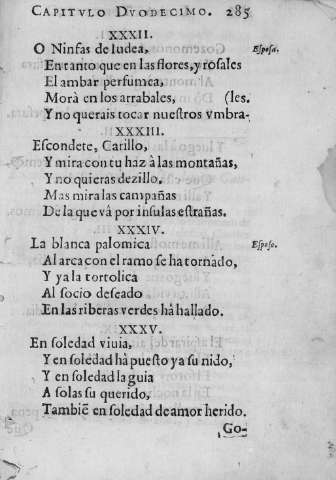 CAPITVLO DVODECIMO. 285
XXXII.
O Ninfas de Iudea, Esposa.
En tanto que en las flores, y rosales
El ambar perfumea,
Morà en los arrabales, (les.
Y no querais tocar nuestros vmbra-
XXXIII.
Escondete, Carillo,
Y mira con tu haz à las montañas,
Y no quieras dezillo.
Mas mira las campañas
De la que và por insulas estrañas.
XXXIV.
La blanca palomica Esposo.
Al arca con el ramo se ha tornàdo,
Y ya la tortolica
Al socio deseado
En las riberas verdes hà hallado.
XXXV.
En soledad viuia,
Y en soledad hà puesto ya su nido,
Y en soledad la guia
A solas su querido,
Tambiẽ en soledad de amor herido.
Go-